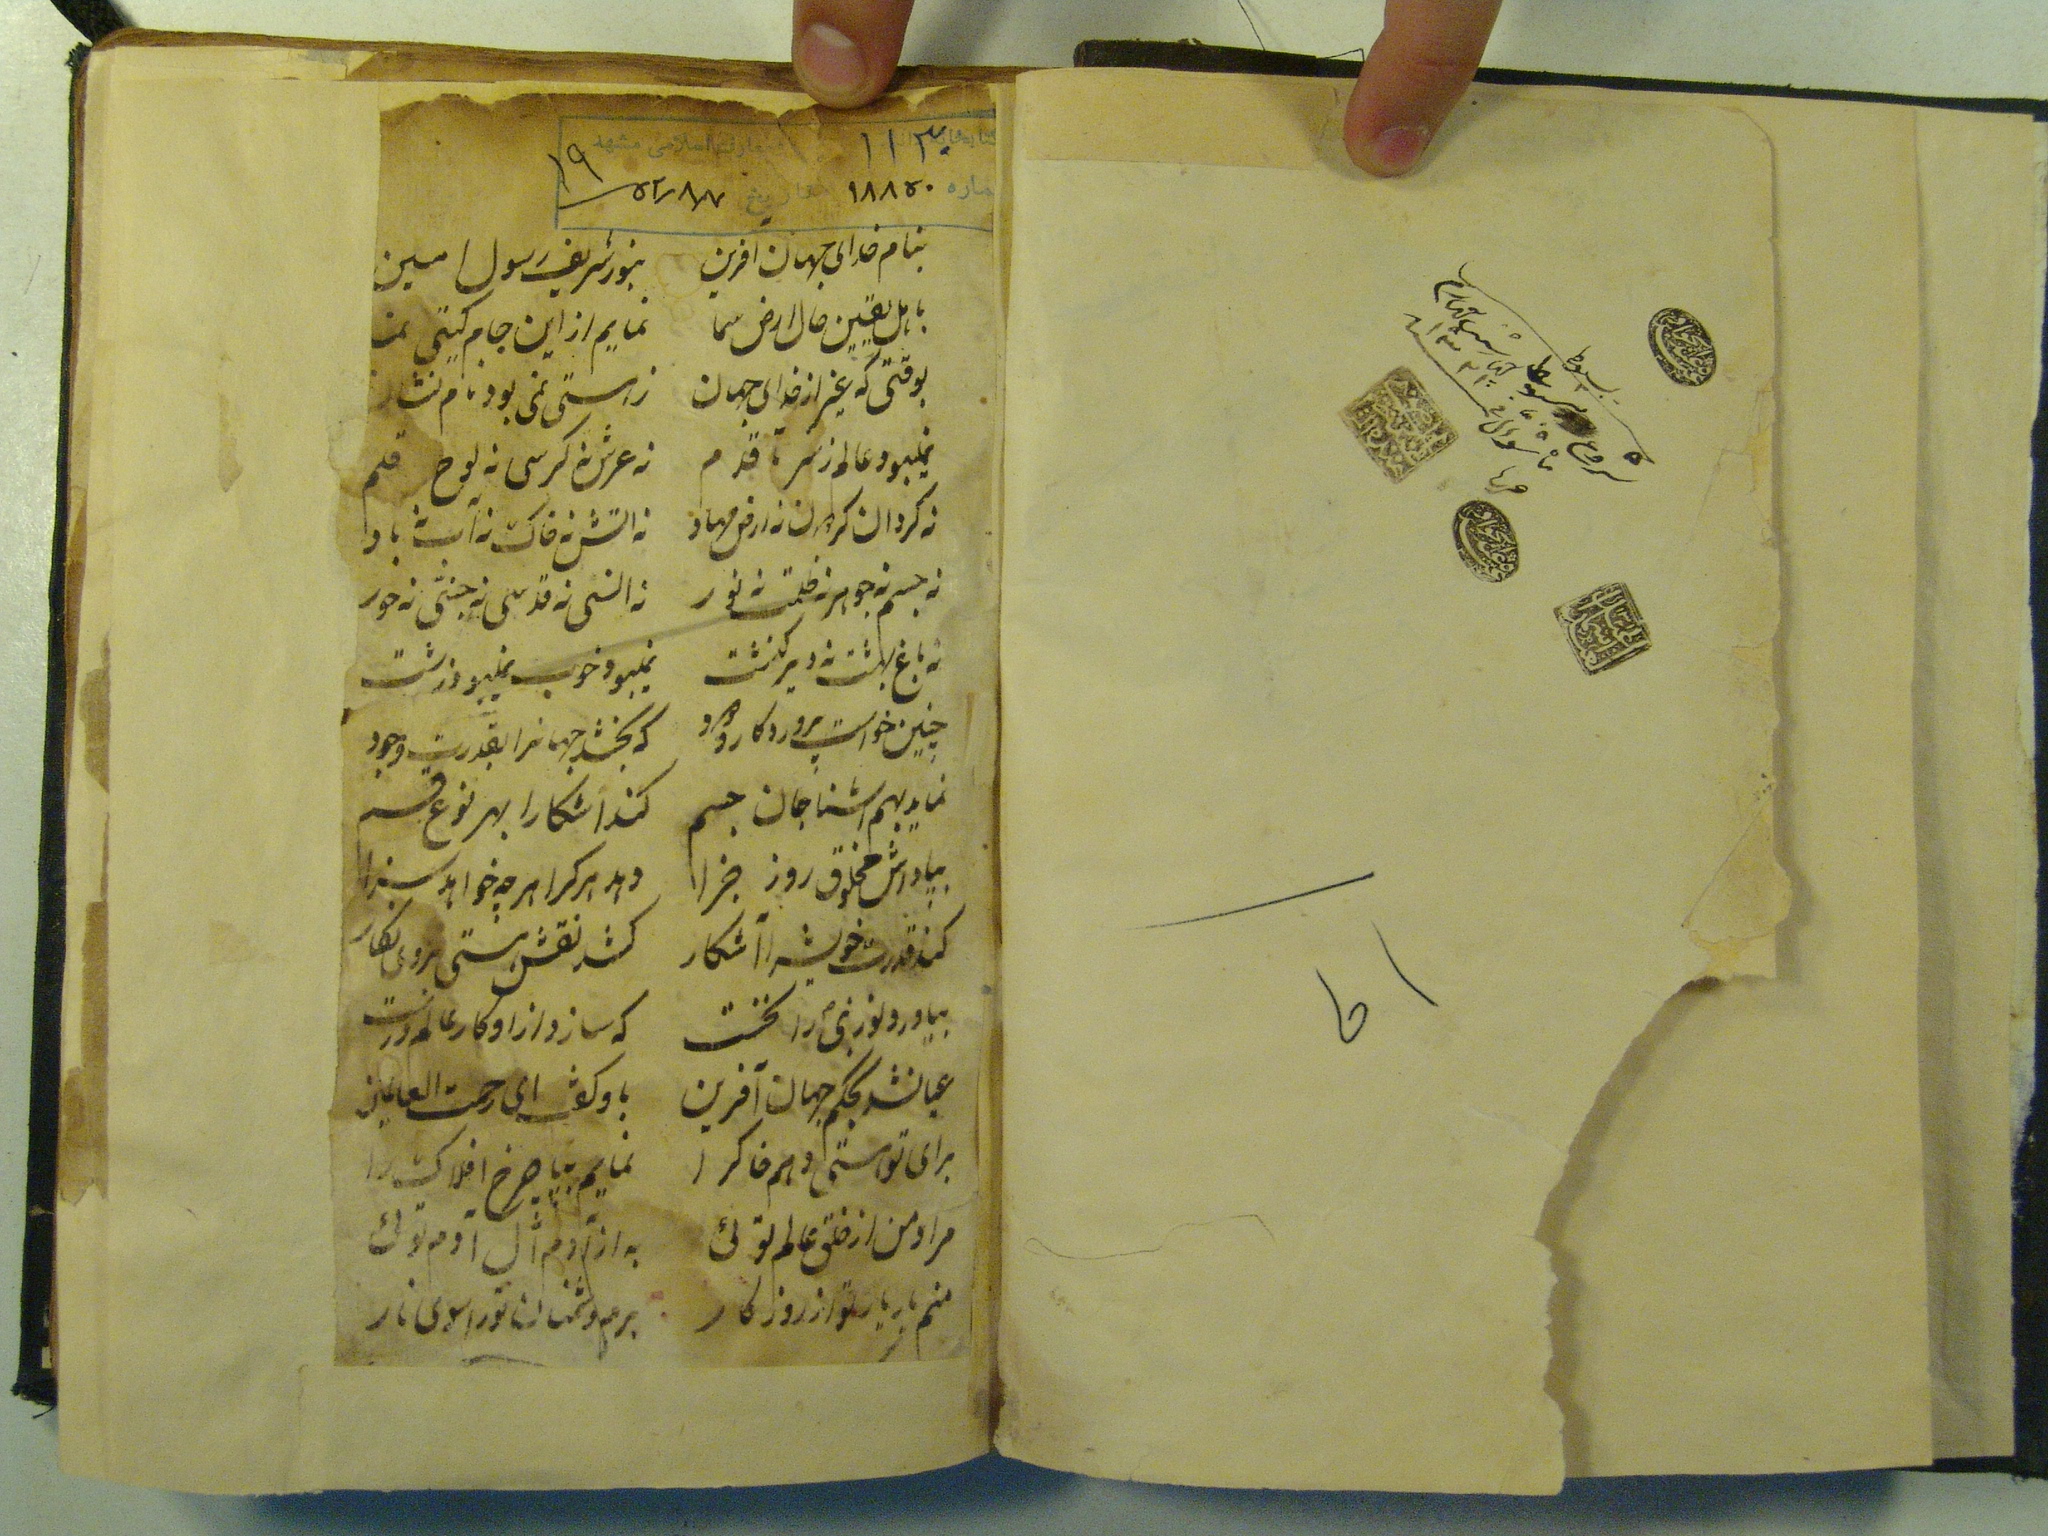 ۱۱۳
معارف اسلامی مشهد
۱۹
شماره ۱۸۸۵۰ تاریخ ۵۲٫۸٫۷
بنام خدای جهان آفرین بنور شریف رسول امین
باهل یقین حال ارض سما نمایم از این جام گیتی نما
بوقتی که غیر از خدای جهان ز هستی نمی بود نام نشان
نمیبود عالم ز سر تا قدم نه عرش نه کرسی نه لوح قلم
نه گردان گردن نه ارض مهاد نه اتش نه خاک نه آب نه باد
نه جسم نه جوهر نه ظلمت نه نور نه انسی نه قدسی نه جنتی نه حور
نه باغ بهشت نه دیر کنشت نمیبود خوب نمیبود زشت
چنین خواست پروردکار ودود که بخشد جهانرا بقدرت وجود
نماید بهم اشنا جان جسم کند اشکارا بهر نوع قسم
بپاداش مخلوق روز جزا دهد هر کرا هر چه خواهد سزا
کند قدرت خویش را آشکار کشد نقش هستی بروی نکار
بیاورد نور نبی را نخست که سازد از او کار عالم درست
عیانشد بحکم جهان آفرین باو کفت ای رحمت العالمین
برای تو هستی دهم خاک را نمایم بپا چرخ افلاک را
مراد من از خلق عالم توئی به از آدم آل آدم توئی
منم یار تو از روزکار برم دشمنان تورا سوی نار
شروع